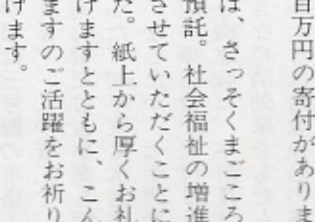 百万円の寄付がありま
は、さっそくまごころ
預託。社会福祉の増進
させていただくことに
た。紙上から厚くお礼
げますとともに、こん
ますのご活躍をお祈り
げます。